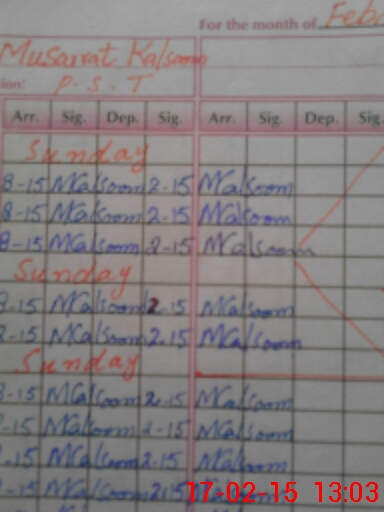 For the month of Feb
Musarrat Kalsoom
ion: P.S.T
Arr. Sig. Dep. Sig. Arr. Sig. Dep. Sig.
Sunday
8-15 MKalsoom 2-15 MKalsoom
8-15 MKalsoom 2-15 MKalsoom
8-15 MKalsoom 2-15 MKalsoom
Sunday
8.15 MKalsoom 2.15 MKalsoom
8.15 MKalsoom 2.15 MKalsoom
Sunday
8-15 MKalsoom 2.15 MKalsoom
-15 MKalsoom 2-15 MKalsoom
.15 MKalsoom 2-15 MKalsoom
-15 MKalsoom 2.15
17-02-15 13:03